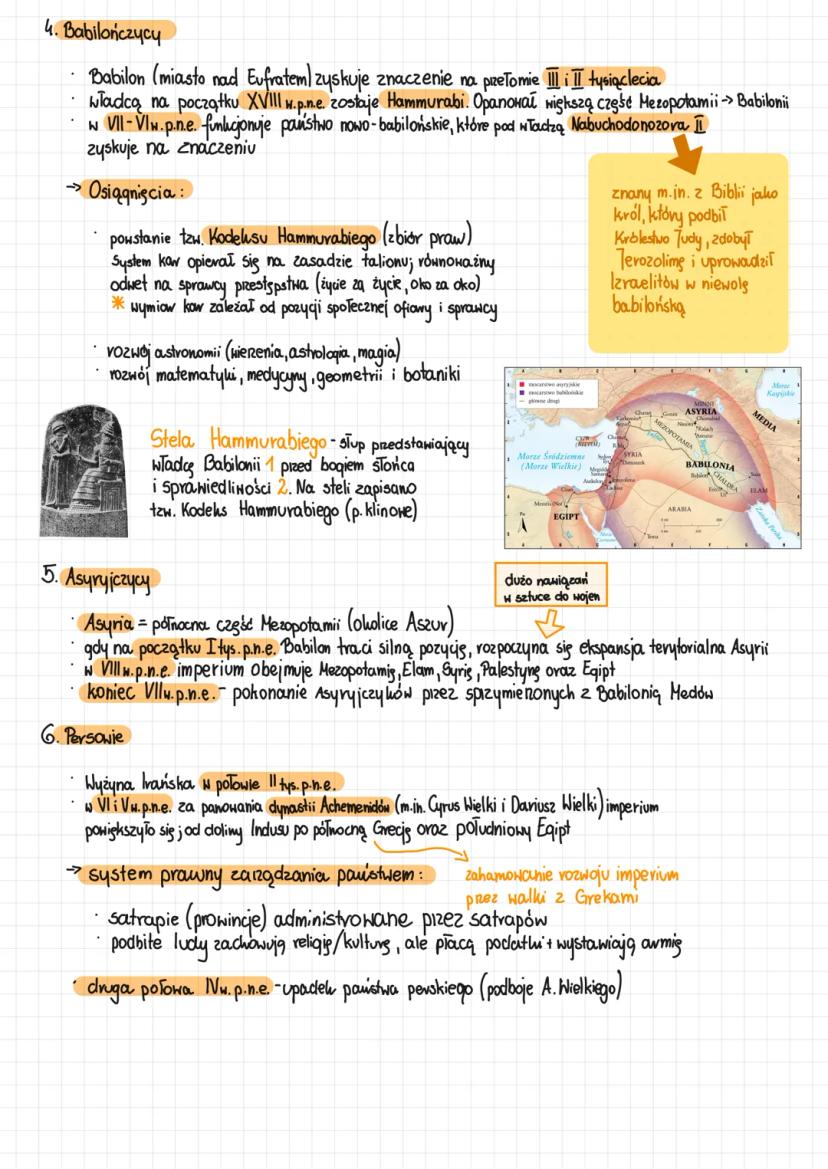 4. Babilończycy
· Babilon (miasto nad Eufratem) zyskuje znaczenie na przełomie III i II tysiąclecia
· władcą na początku XVIII w.p.n.e. zostaje Hammurabi. Opanował większą część Mezopotamii → Babilonii
· w VII-VI w.p.n.e. funkcjonuje państwo nowo-babilońskie, które pod władzą Nabuchodonozora II
zyskuje na znaczeniu
znany m.in. z Biblii jako
król, który podbił
Królestwo Judy, zdobył
Jerozolimę i uprowadził
Izraelitów w niewolę
babilońską
→ Osiągnięcia:
· powstanie tzw. Kodeksu Hammurabiego (zbiór praw)
system kar opierał się na zasadzie talionu; równoważny
odwet na sprawcy przestępstwa (życie za życie, oko za oko)
* wymiar kar zależał od pozycji społecznej ofiary i sprawcy
· rozwój astronomii (wierzenia, astrologia, magia)
· rozwój matematyki, medycyny, geometrii i botaniki
Stela Hammurabiego - słup przedstawiający
władcę Babilonii 1 przed bogiem słońca
i sprawiedliwości 2. Na steli zapisano
tzw. Kodeks Hammurabiego (p. klinowe)
mocarstwo asyryjskie
mocarstwo babilońskie
główne drogi
Morze Kaspijskie
MINNI
ASYRIA
MEDIA
MEZOPOTAMIA
Morze Śródziemne
(Morze Wielkie)
SYRIA
Damaszek
BABILONIA
Babilon
CHALDEA
ELAM
Ur
EGIPT
ARABIA
Tema
Zatoka Perska
5. Asyryjczycy
dużo nawiązań
w sztuce do wojen
· Asyria = północna część Mezopotamii (okolice Aszur)
· gdy na początku I tys. p.n.e. Babilon traci silną pozycję, rozpoczyna się ekspansja terytorialna Asyrii
· w VIII w. p.n.e. imperium obejmuje Mezopotamię, Elam, Syrię, Palestynę oraz Egipt
· koniec VII w. p.n.e. - pokonanie Asyryjczyków przez sprzymierzonych z Babilonią Medów
6. Persowie
· Wyżyna Irańska w połowie II tys. p.n.e.
· w VI i V w. p.n.e. za panowania dynastii Achemenidów (m.in. Cyrus Wielki i Dariusz Wielki) imperium
powiększyło się; od doliny Indusu po północną Grecję oraz południowy Egipt
→ system prawny zarządzania państwem:
zahamowanie rozwoju imperium
przez walki z Grekami
· satrapie (prowincje) administrowane przez satrapów
· podbite ludy zachowują religię/kulturę, ale płacą podatki + wystawiają armię
· druga połowa IV w. p.n.e. - upadek państwa perskiego (podboje A. Wielkiego)